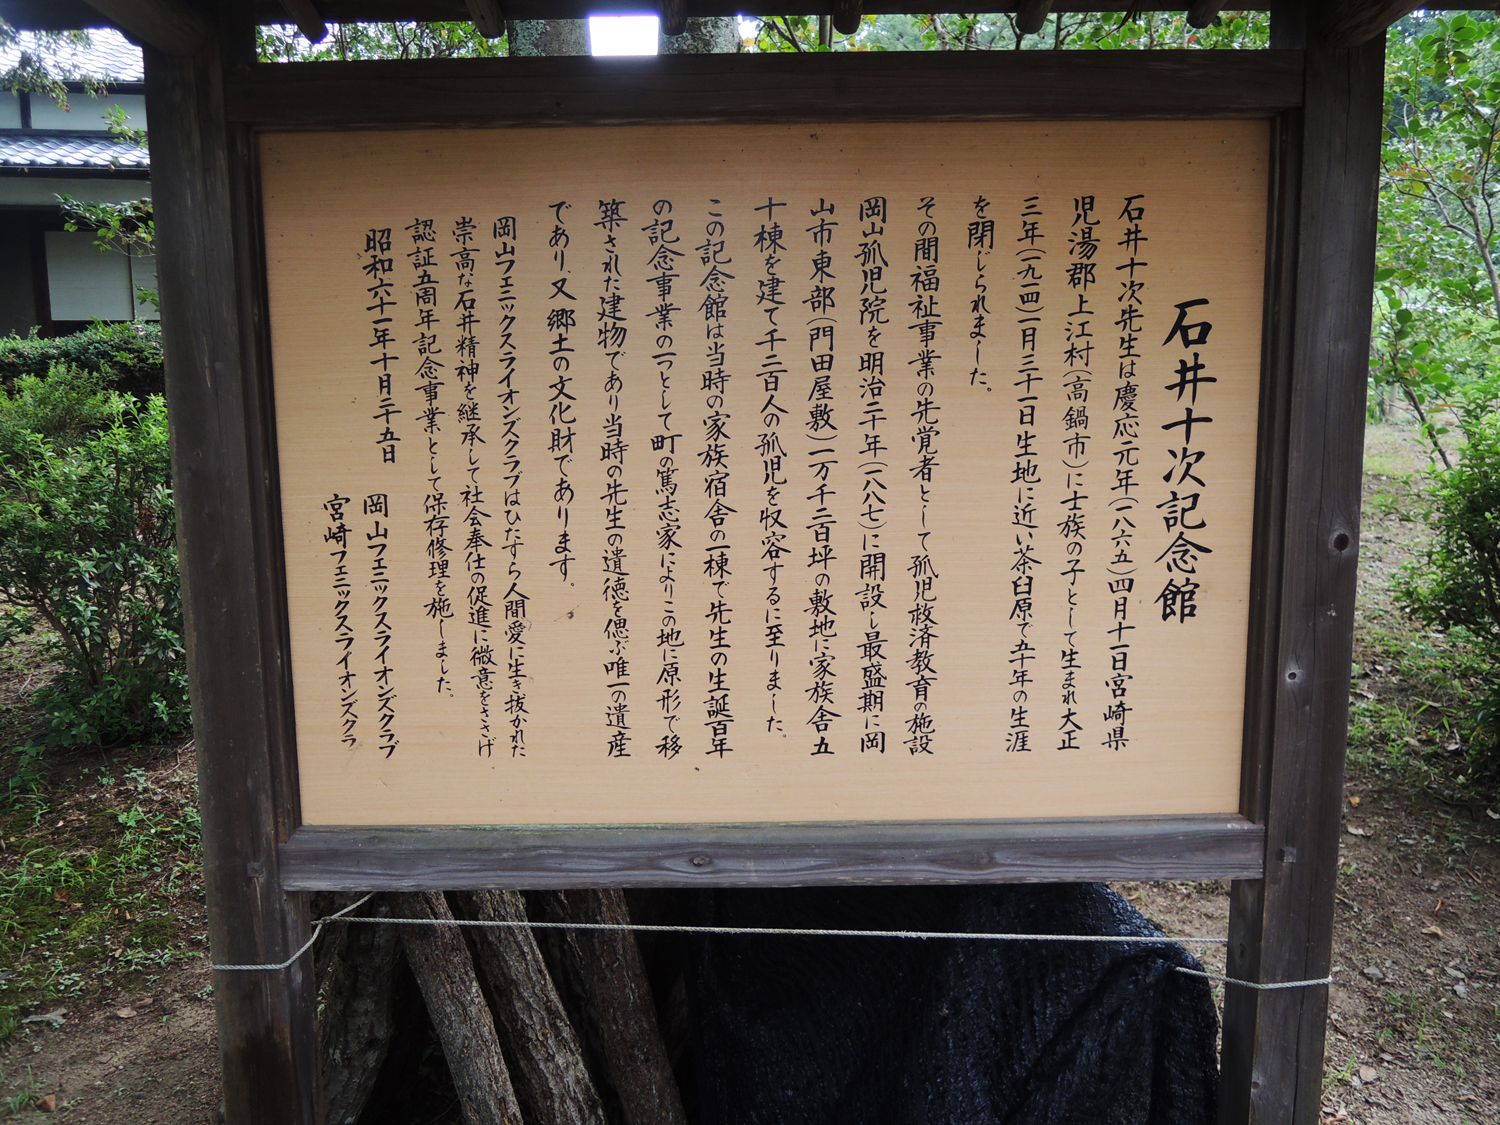 石井十次記念館
石井十次先生は慶応元年(一八六五)四月十一日宮崎県
児湯郡上江村(高鍋市)に士族の子として生まれ大正
三年(一九一四)一月三十一日生地に近い茶臼原で五十年の生涯
を閉じられました。
その間福祉事業の先覚者として孤児救済教育の施設
岡山孤児院を明治二十年(一八八七)に開設し最盛期に岡
山市東部(門田屋敷)一万千二百坪の敷地に家族舎五
十棟を建て千二百人の孤児を収容するに至りました。
この記念館は当時の家族宿舎の一棟で先生の生誕百年
の記念事業の一つとして町の篤志家によりこの地に原形で移
築された建物であり当時の先生の遺徳を偲ぶ唯一の遺産
であり、又郷土の文化財であります。
岡山フェニックスライオンズクラブはひたすら人間愛に生き抜かれた
崇高な石井精神を継承して社会奉仕の促進に微意をささげ
認証五周年記念事業として保存修理を施しました。
昭和六十一年十月二十五日
岡山フェニックスライオンズクラブ
宮崎フェニックスライオンズクラ